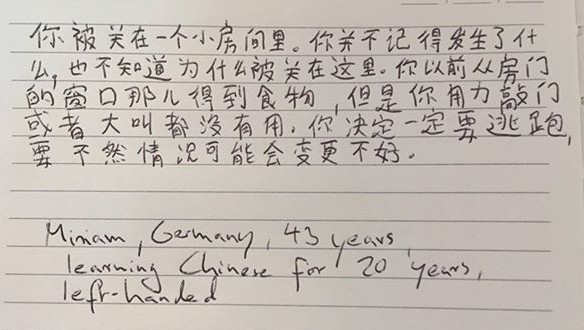 你被关在一个小房间里。你并不记得发生了什
么,也不知道为什么被关在这里。你以前从房门
的窗口那儿得到食物,但是你用力敲门
或者大叫都没有用。你决定一定要逃跑,
要不然情况可能会变更不好。
Miriam, Germany, 43 years,
learning Chinese for 20 years,
left-handed